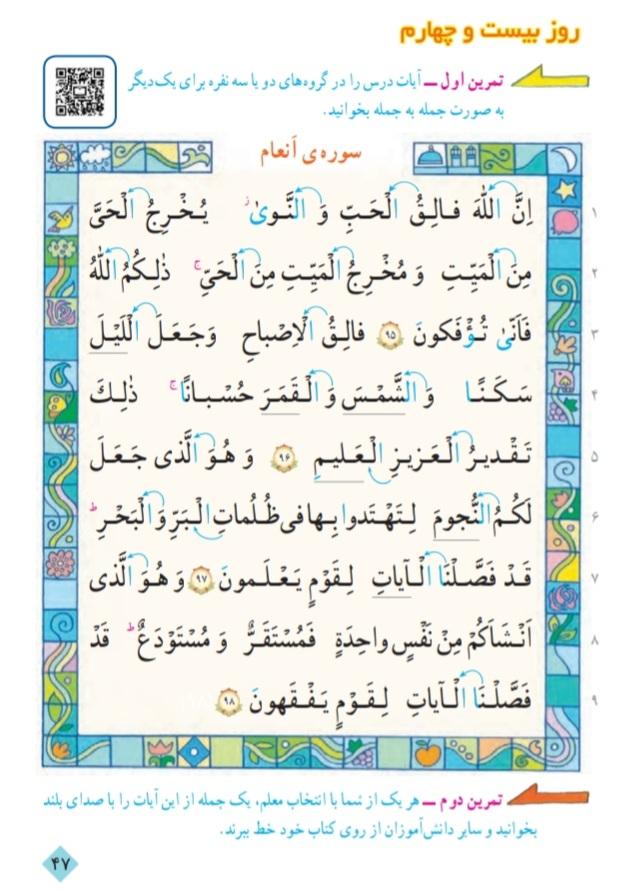 روز بیست و چهارم
تمرین اول ــ آیات درس را در گروه‌های دو یا سه نفره برای یک‌دیگر
به صورت جمله به جمله بخوانید.
سوره‌ی اَنعام
اِنَّ اللّٰهَ فالِقُ الْحَبِّ وَ النَّوىٰ ۖ يُخْرِجُ الْحَىَّ ۱
مِنَ الْمَيِّتِ وَ مُخْرِجُ الْمَيِّتِ مِنَ الْحَىِّ ۚ ذٰلِكُمُ اللّٰهُ ۲
فَاَنّىٰ تُؤْفَكونَ ۹۵ فالِقُ الْاِصْباحِ وَجَعَلَ اللَّيْلَ ۳
سَكَنًا وَ الشَّمْسَ وَ الْقَمَرَ حُسْبانًا ۚ ذٰلِكَ ۴
تَقْديرُ الْعَزيزِ الْعَليمِ ۹۶ وَ هُوَ الَّذى جَعَلَ ۵
لَكُمُ النُّجومَ لِتَهْتَدوا بِها فى ظُلُماتِ الْبَرِّ وَ الْبَحْرِ ۗ ۶
قَدْ فَصَّلْنَا الْآياتِ لِقَوْمٍ يَعْلَمونَ ۹۷ وَ هُوَ الَّذى ۷
اَنْشَاَكُمْ مِنْ نَفْسٍ واحِدَةٍ فَمُسْتَقَرٌّ وَ مُسْتَوْدَعٌ ۗ قَدْ ۸
فَصَّلْنَا الْآياتِ لِقَوْمٍ يَفْقَهونَ ۹۸ ۹
تمرین دوم ــ هر یک از شما با انتخاب معلم، یک جمله از این آیات را با صدای بلند
بخوانید و سایر دانش‌آموزان از روی کتاب خود خط ببرند.
۴۷